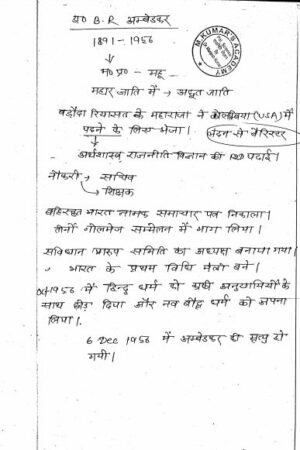 डा० B.R अम्बेडकर
1891-1956
M.KUMAR'S ACADEMY
म० प्र० - महू
महार जाति में → अछूत जाति
बड़ौदा रियासत के महाराजा ने कोलंबिया (USA) में
पढ़ने के लिए भेजा। लंदन से बैरिस्टर
अर्थशास्त्र, राजनीति विज्ञान की पढ़ाई।
नौकरी → सचिव
→ शिक्षक
बहिष्कृत भारत नामक समाचार पत्र निकाला।
तीनों गोलमेज सम्मेलन में भाग लिया।
संविधान प्रारुप समिति का अध्यक्ष बनाया गया।
भारत के प्रथम विधि मंत्री बने।
1956 में हिन्दू धर्म को अनुयायियों के
साथ छोड़ दिया और नव बौद्ध धर्म को अपना
लिया।
6 Dec 1956 में अम्बेडकर की मृत्यु हो
गयी।